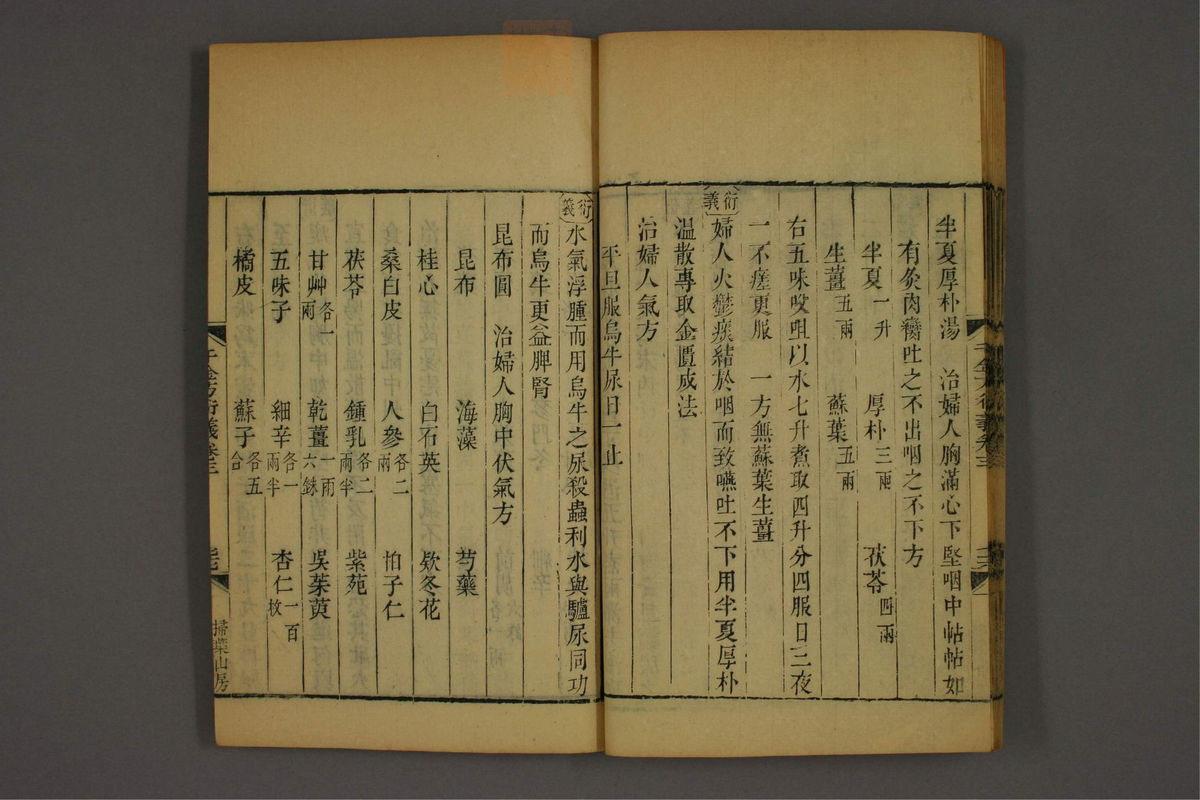 半夏厚朴湯　治婦人胸滿心下堅咽中帖帖如
有炙肉臠吐之不出咽之不下方
半夏一升　厚朴三兩　茯苓四兩
生薑五兩　蘇葉五兩
右五味㕮咀以水七升煮取四升分四服日三夜
一不瘥更服　一方無蘇葉生薑
衍義　婦人火鬱痰結於咽而致嚥吐不下用半夏厚朴
溫散專取金匱成法
治婦人氣方
平旦服烏牛尿日一止
衍義　水氣浮腫而用烏牛之尿殺蟲利水與驢尿同功
而烏牛更益脾腎
昆布圓　治婦人胸中伏氣方
昆布　海藻　芍藥
桂心　白石英　欵冬花
桑白皮　人參各二兩　柏子仁
茯苓　鍾乳各二兩半　紫菀
甘艸各一兩　乾薑一兩六銖　吳茱萸
五味子　細辛各一兩半　杏仁一百枚
橘皮　蘇子各五合
千金方衍義卷三
掃葉山房